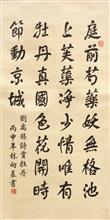 庭前芍藥妖無格池
上芙蕖淨少情唯有
牡丹真國色花開時
節動京城
劉禹錫詩賞牡丹
丙申年林向書